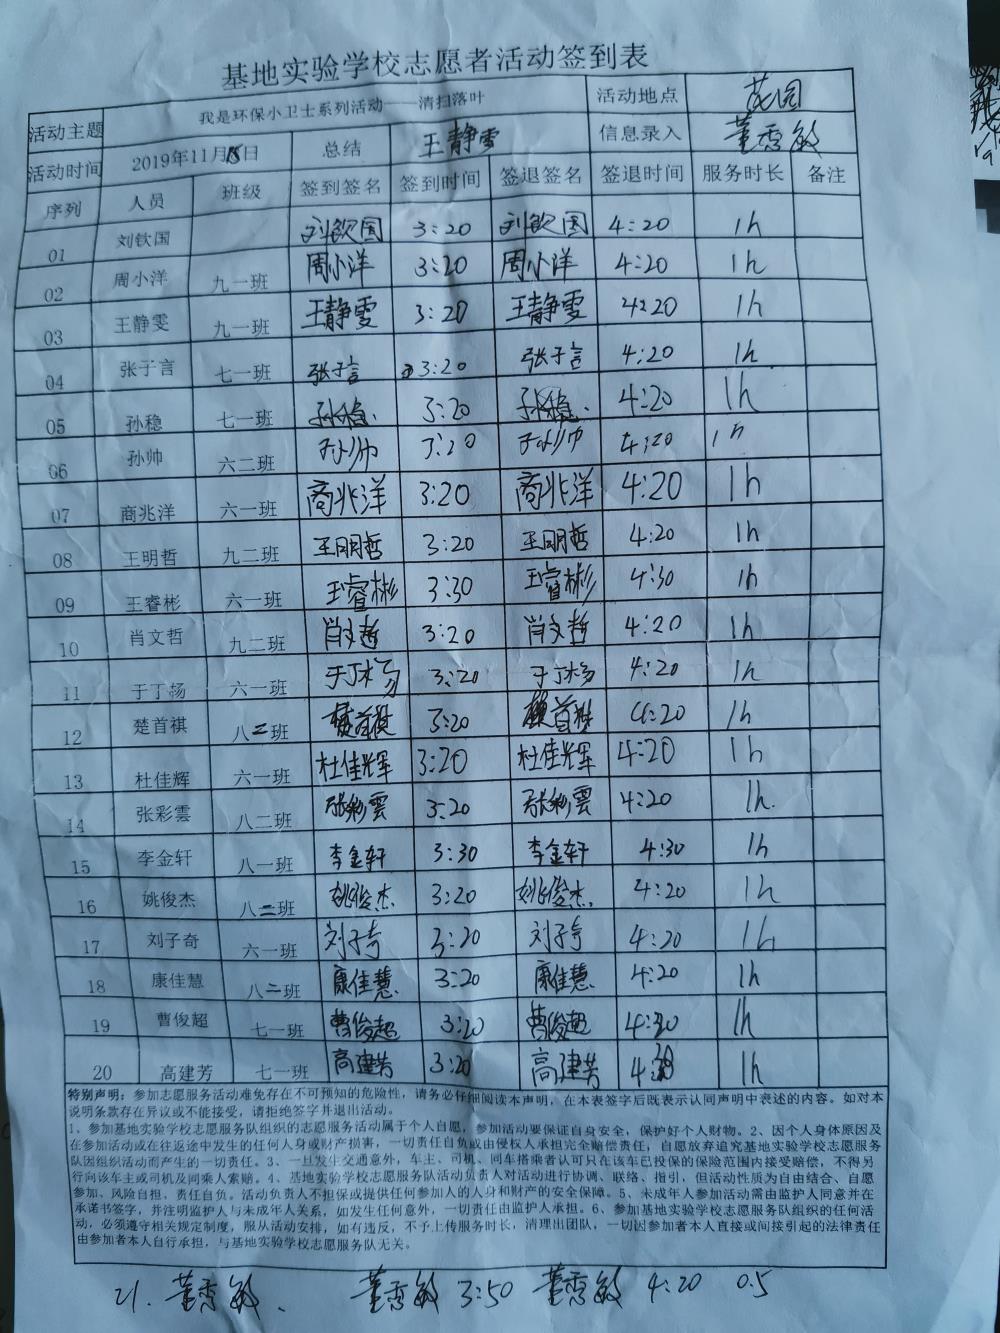 基地实验学校志愿者活动签到表
活动主题 我是环保小卫士系列活动——清扫落叶 活动地点 花园
活动时间 2019年11月15日 总结 王静雯 信息录入 董秀敏
序列 人员 班级 签到签名 签到时间 签退签名 签退时间 服务时长 备注
01 刘钦国 刘钦国 3:20 刘钦国 4:20 1h
02 周小洋 九一班 周小洋 3:20 周小洋 4:20 1h
03 王静雯 九一班 王静雯 3:20 王静雯 4:20 1h
04 张子言 七一班 张子言 3:20 张子言 4:20 1h
05 孙稳 七一班 孙稳. 3:20 孙稳. 4:20 1h
06 孙帅 六二班 孙帅 3:20 孙帅 4:20 1h
07 商兆洋 六一班 商兆洋 3:20 商兆洋 4:20 1h
08 王明哲 九二班 王明哲 3:20 王明哲 4:20 1h
09 王睿彬 六一班 王睿彬 3:30 王睿彬 4:30 1h
10 肖文哲 九二班 肖文哲 3:20 肖文哲 4:20 1h
11 于丁杨 六一班 于丁杨 3:20 于丁杨 4:20 1h
12 楚首祺 八二班 楚首祺 3:20 楚首祺 4:20 1h
13 杜佳辉 六一班 杜佳辉 3:20 杜佳辉 4:20 1h
14 张彩雲 八二班 张彩雲 3:20 张彩雲 4:20 1h.
15 李金轩 八一班 李金轩 3:30 李金轩 4:30 1h
16 姚俊杰 八二班 姚俊杰 3:20 姚俊杰. 4:20 1h
17 刘子奇 六一班 刘子奇 3:20 刘子奇 4:20 1h
18 康佳慧 八二班 康佳慧. 3:20 康佳慧. 4:20 1h
19 曹俊超 七一班 曹俊超 3:20 曹俊超 1h
20 高建芳 七一班 高建芳 高建芳 1h
特别声明：参加志愿服务活动难免存在不可预知的危险性，请务必仔细阅读本声明，在本表签字后既表示认同声明中表述的内容。如对本
说明条款存在异议或不能接受，请拒绝签字并退出活动。
1、参加基地实验学校志愿服务队组织的志愿服务活动属于个人自愿，参加活动要保证自身安全，保护好个人财物。2、因个人身体原因及
在参加活动或在往返途中发生的任何人身或财产损害，一切责任自负或由侵权人承担完全赔偿责任，自愿放弃追究基地实验学校志愿服务
队因组织活动而产生的一切责任。3、一旦发生交通意外，车主、司机、同车搭乘者认可只在该车已投保的保险范围内接受赔偿，不得另
行向该车主或司机及同乘人索赔。4、基地实验学校志愿服务队活动负责人对活动进行协调、联络、指引，但活动性质为自由结合、自愿
参加、风险自担、责任自负。活动负责人不担保或提供任何参加人的人身和财产的安全保障。5、未成年人参加活动需由监护人同意并在
承诺书签字，并注明监护人与未成年人关系，如发生任何意外，一切责任由监护人承担。6、参加基地实验学校志愿服务队组织的任何活
动，必须遵守相关规定制度，服从活动安排，如有违反，不予上传服务时长，清理出团队，一切因参加者本人直接或间接引起的法律责任
由参加者本人自行承担，与基地实验学校志愿服务队无关。
21. 董秀敏、 董秀敏 3:50 董秀敏 4:20 0.5